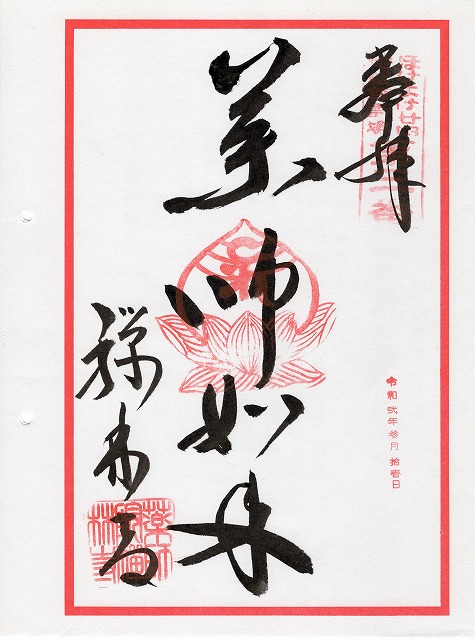 奉拝
薬師如来
令和弐年参月拾壱日
禅林寺